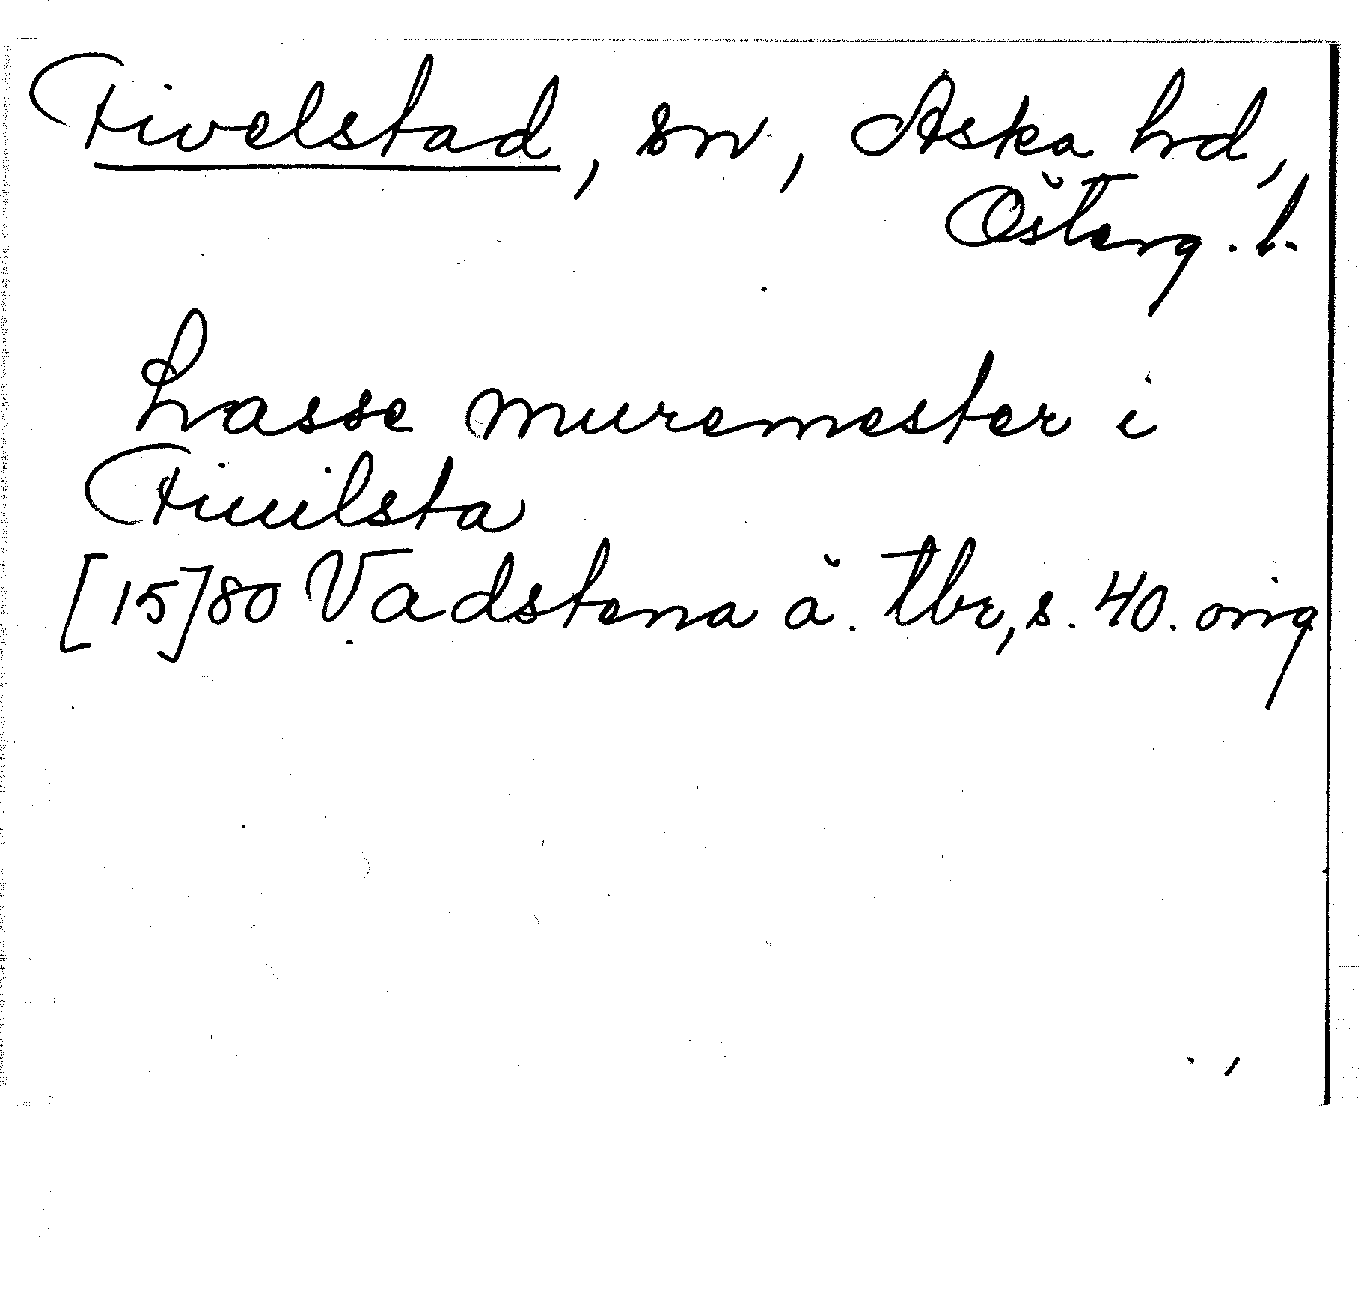 Fivelstad, sn, Aska hd,
Österg. l.
Lasse muremester i
Fiuilsta
[15]80 Vadstena ä. tbr, s. 40. orig